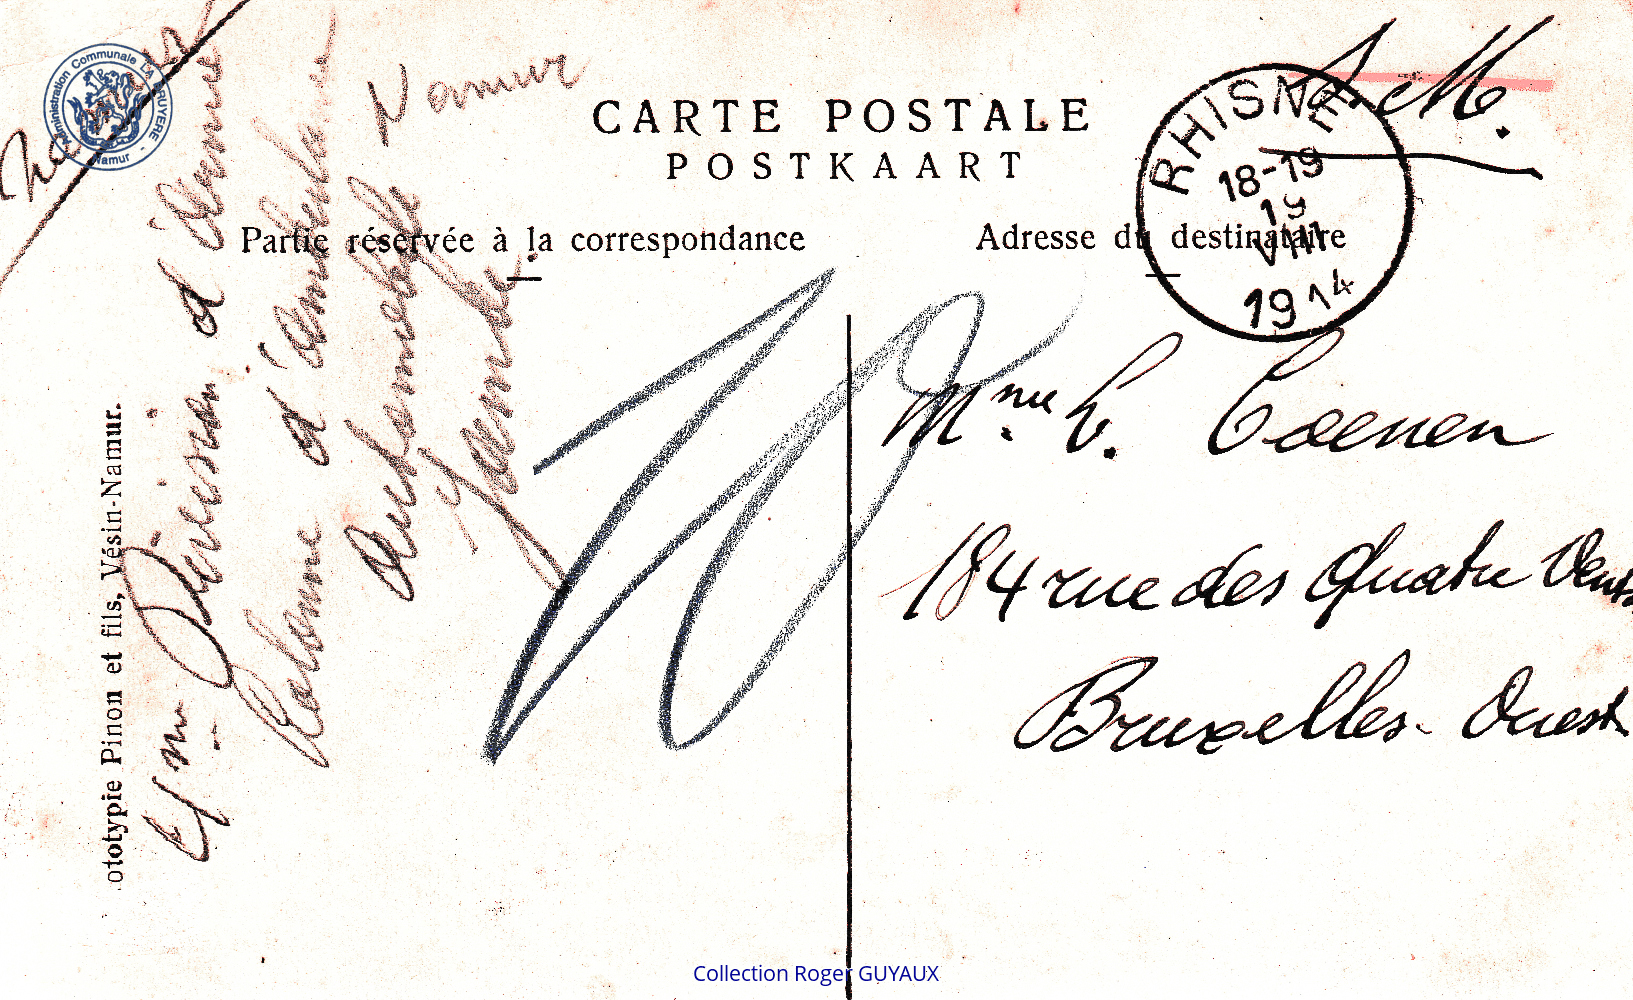 CARTE POSTALE
POSTKAART
Partie réservée à la correspondance
Adresse du destinataire
S. M.
RHISNE
18-19
19
VIII
1914
Namur
4me Division d'Armée
Colonne d'ambulance
Automobile
Namur
Administration Communale LA BRUYERE
Namur
ototypie Pinon et fils, Vésin-Namur.
Mme L. Coenen
184 rue des Quatre Vents
Bruxelles-Ouest
Collection Roger GUYAUX